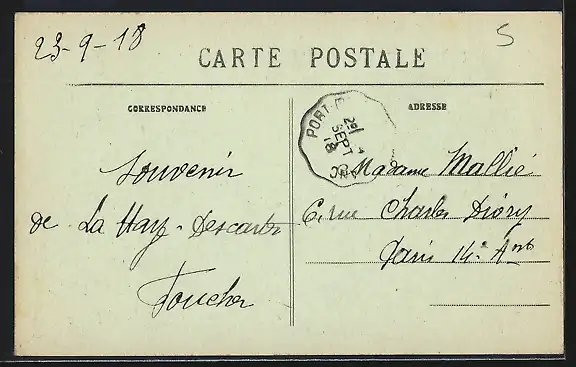 23-9-18
5
CARTE POSTALE
CORRESPONDANCE
ADRESSE
PORT-
29
SEPT
18
Souvenir
de La Haye-Descartes
Foucher
Madame Mallié
6, rue Charles Divry
Paris 14e Arr